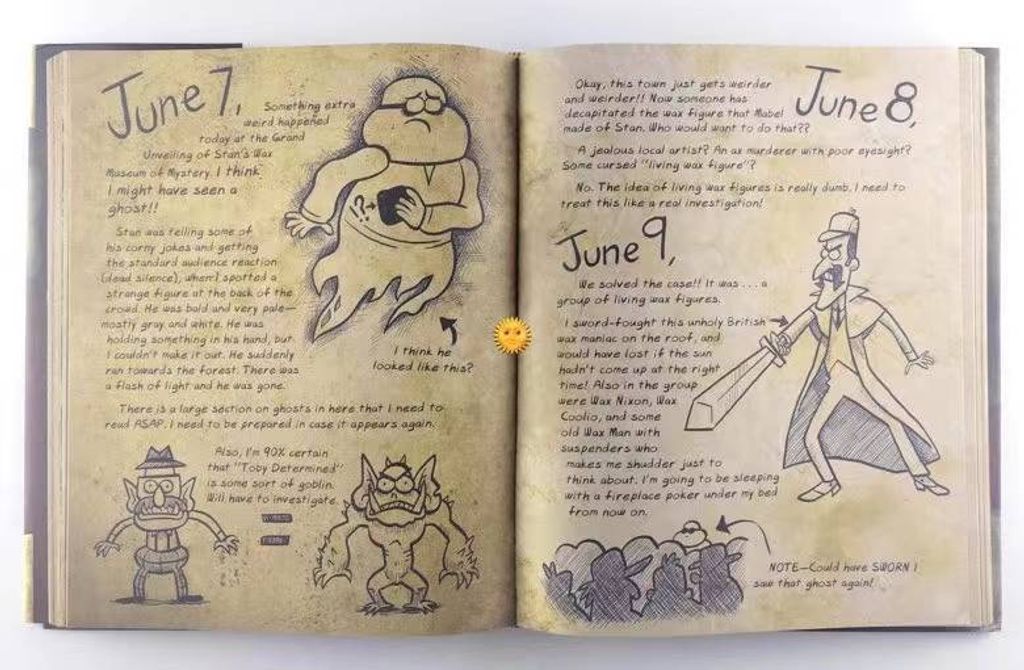 June 7,
Something extra
weird happened
today at the Grand
Unveiling of Stan's Wax
Museum of Mystery. I think
I might have seen a
ghost!!
Stan was telling some of
his corny jokes and getting
the standard audience reaction
(dead silence), when I spotted a
strange figure at the back of the
crowd. He was bald and very pale—
mostly gray and white. He was
holding something in his hand, but
I couldn't make it out. He suddenly
ran towards the forest. There was
a flash of light and he was gone.
!?
I think he
looked like this?
There is a large section on ghosts in here that I need to
read ASAP. I need to be prepared in case it appears again.
Also, I'm 90% certain
that "Toby Determined"
is some sort of goblin.
Will have to investigate.
June 8,
Okay, this town just gets weirder
and weirder!! Now someone has
decapitated the wax figure that Mabel
made of Stan. Who would want to do that??
A jealous local artist? An ax murderer with poor eyesight?
Some cursed "living wax figure"?
No. The idea of living wax figures is really dumb. I need to
treat this like a real investigation!
June 9,
We solved the case!! It was . . . a
group of living wax figures.
I sword-fought this unholy British
wax maniac on the roof, and
would have lost if the sun
hadn't come up at the right
time! Also in the group
were Wax Nixon, Wax
Coolio, and some
old Wax Man with
suspenders who
makes me shudder just to
think about. I'm going to be sleeping
with a fireplace poker under my bed
from now on.
NOTE—Could have SWORN I
saw that ghost again!